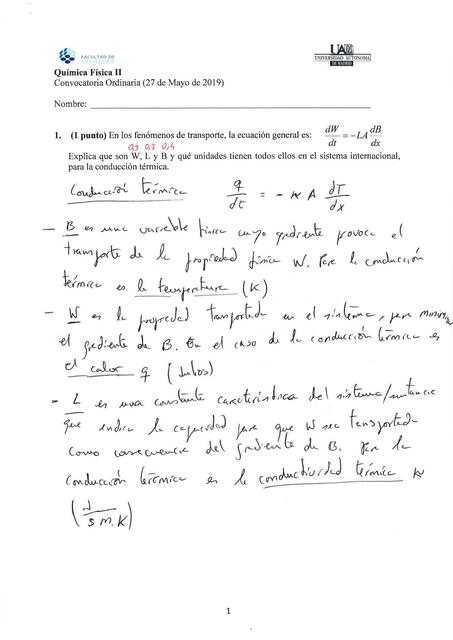 FACULTAD DE
CIENCIAS
UAM
UNIVERSIDAD AUTONOMA
DE MADRID
Química Física II
Convocatoria Ordinaria (27 de Mayo de 2019)
Nombre:
1. (1 punto) En los fenómenos de transporte, la ecuación general es: dW/dt = -LA dB/dx
0,3 0,3 0,4
Explica que son W, L y B y qué unidades tienen todos ellos en el sistema internacional,
para la conducción térmica.
Conducción térmica q/dt = - κ A dT/dx
— B es una variable física cuyo gradiente provoca el
transporte de la propiedad física W. Para la conducción
térmica es la temperatura (K)
— W es la propiedad transportada en el sistema, para minimizar
el gradiente de B. En el caso de la conducción térmica es
el calor q (Julios)
— L es una constante característica del sistema/sustancia
que indica la capacidad para que W sea transportada
como consecuencia del gradiente de B. Para la
conducción térmica es la conductividad térmica κ
(J / s m K)
1